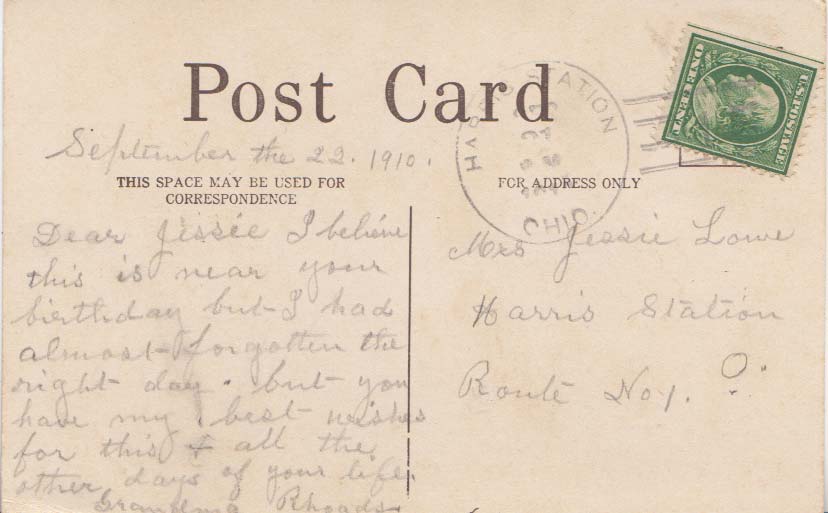 Post Card
September the 22. 1910.
THIS SPACE MAY BE USED FOR
CORRESPONDENCE
Dear Jissée I believe
this is near your
birthday but I had
almost forgotten the
right day. but you
have my best wishes
for this & all the
other days of your life.
Grandma Rhoads
HARRIS STATION
OHIO.
U.S. POSTAGE
ONE CENT
FOR ADDRESS ONLY
Mrs Jessie Lowe
Harris Station
Route No 1. O.